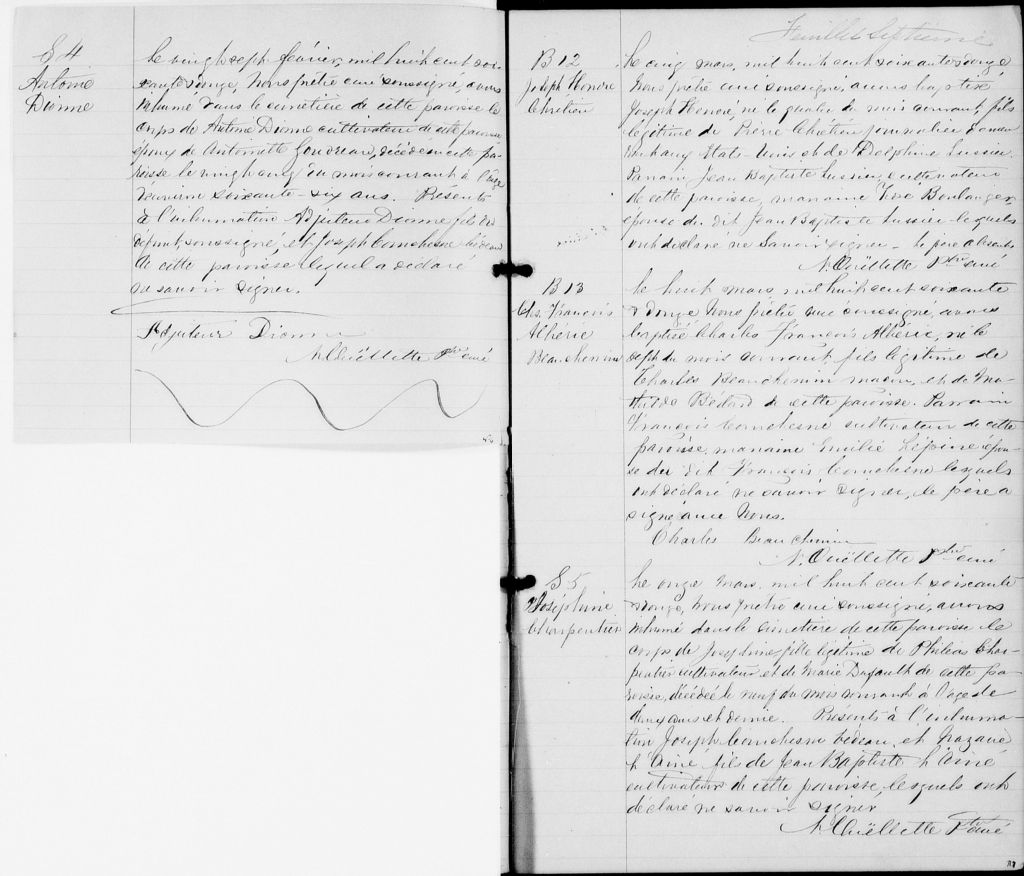 S 4
Antoine
Dionne
Le vingt sept février, mil huit cent soi-
xante onze, Nous prêtre curé soussigné, avons
inhumé dans le cimetière de cette paroisse le
corps de Antoine Dionne cultivateur de cette paroisse
époux de Antoinette décédé en cette pa-
roisse le vingt cinq du mois courant à l'age
d'environ soixante-six ans. Présents
à l'inhumation Adjuteur Dionne fils du
défunt, soussigné, et Joseph Comchesne bédeau
de cette paroisse lequel a déclaré
ne savoir signer.
Adjuteur Dionne
N. Ouëllette Ptre curé
Feuillet Septième
B 12
Joseph Honoré
Chrétien
Le cinq mars, mil huit cent soixante onze
Nous prêtre curé soussigné, avons baptisé
Joseph Honoré, né le quatre du mois courant, fils
légitime de Chrétien journalier
Etats-Unis et de Delphine Lussier.
Parrain Jean Baptiste Lussier, cultivateur
de cette paroisse, marraine Boulanger
épouse du dit Jean Baptiste Lussier lesquels
ont déclaré ne savoir signer - le père absent
N. Ouëllette Ptre curé
B 13
Chs. François
Albéric
Beauchemin
Le huit mars, mil huit cent soixante
& onze Nous prêtre curé soussigné, avons
baptisé Charles François Albéric, né le
sept du mois courant fils légitime de
Charles Beauchemin et de Ma-
thilde Bédard de cette paroisse. Parrain
François Comchesne cultivateur de cette
paroisse, marraine Emilie Lépine épou-
se du dit François Comchesne lesquels
ont déclaré ne savoir signer, le père a
signé avec Nous.
Charles Beauchemin
N. Ouëllette Ptre curé
S 5
Joséphine
Charpentier
Le onze mars, mil huit cent soixante
& onze, Nous prêtre curé soussigné, avons
inhumé dans le cimetière de cette paroisse le
corps de Josephine fille légitime de Philéas Char-
pentier cultivateur et de Marie Dufault de cette pa-
roisse, décédée le neuf du mois courant à l'age de
deux ans et demie. Présents à l'inhuma-
tion Joseph Comchesne bédeau, et Nazaire
L'Ainé fils de Jean Baptiste L'Ainé
cultivateur de cette paroisse, lesquels ont
déclaré ne savoir signer
N. Ouëllette Ptre curé